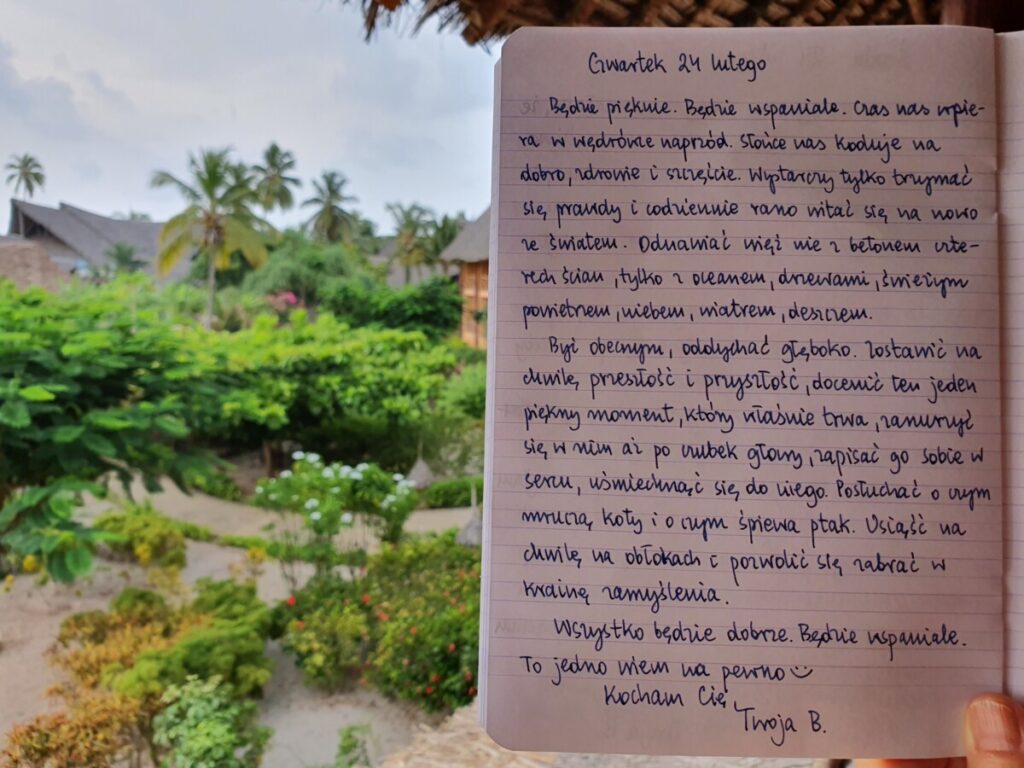 Czwartek 24 lutego
Będzie pięknie. Będzie wspaniale. Czas nas wpie-
ra w wędrówce naprzód. Słońce nas koduje na
dobro, zdrowie i szczęście. Wystarczy tylko trzymać
się prawdy i codziennie rano witać się na nowo
ze światem. Odnawiać więź nie z betonem czte-
rech ścian, tylko z oceanem, drzewami, świeżym
powietrzem, niebem, wiatrem, deszczem.
Być obecnym, oddychać głęboko. Zostawić na
chwilę przeszłość i przyszłość, docenić ten jeden
piękny moment, który właśnie trwa, zanurzyć
się w nim aż po czubek głowy, zapisać go sobie w
sercu, uśmiechnąć się do niego. Posłuchać o czym
mruczą koty i o czym śpiewa ptak. Usiąść na
chwilę na obłokach i pozwolić się zabrać w
krainę zamyślenia.
Wszystko będzie dobrze. Będzie wspaniale.
To jedno wiem na pewno
Kocham Cię,
Twoja B.